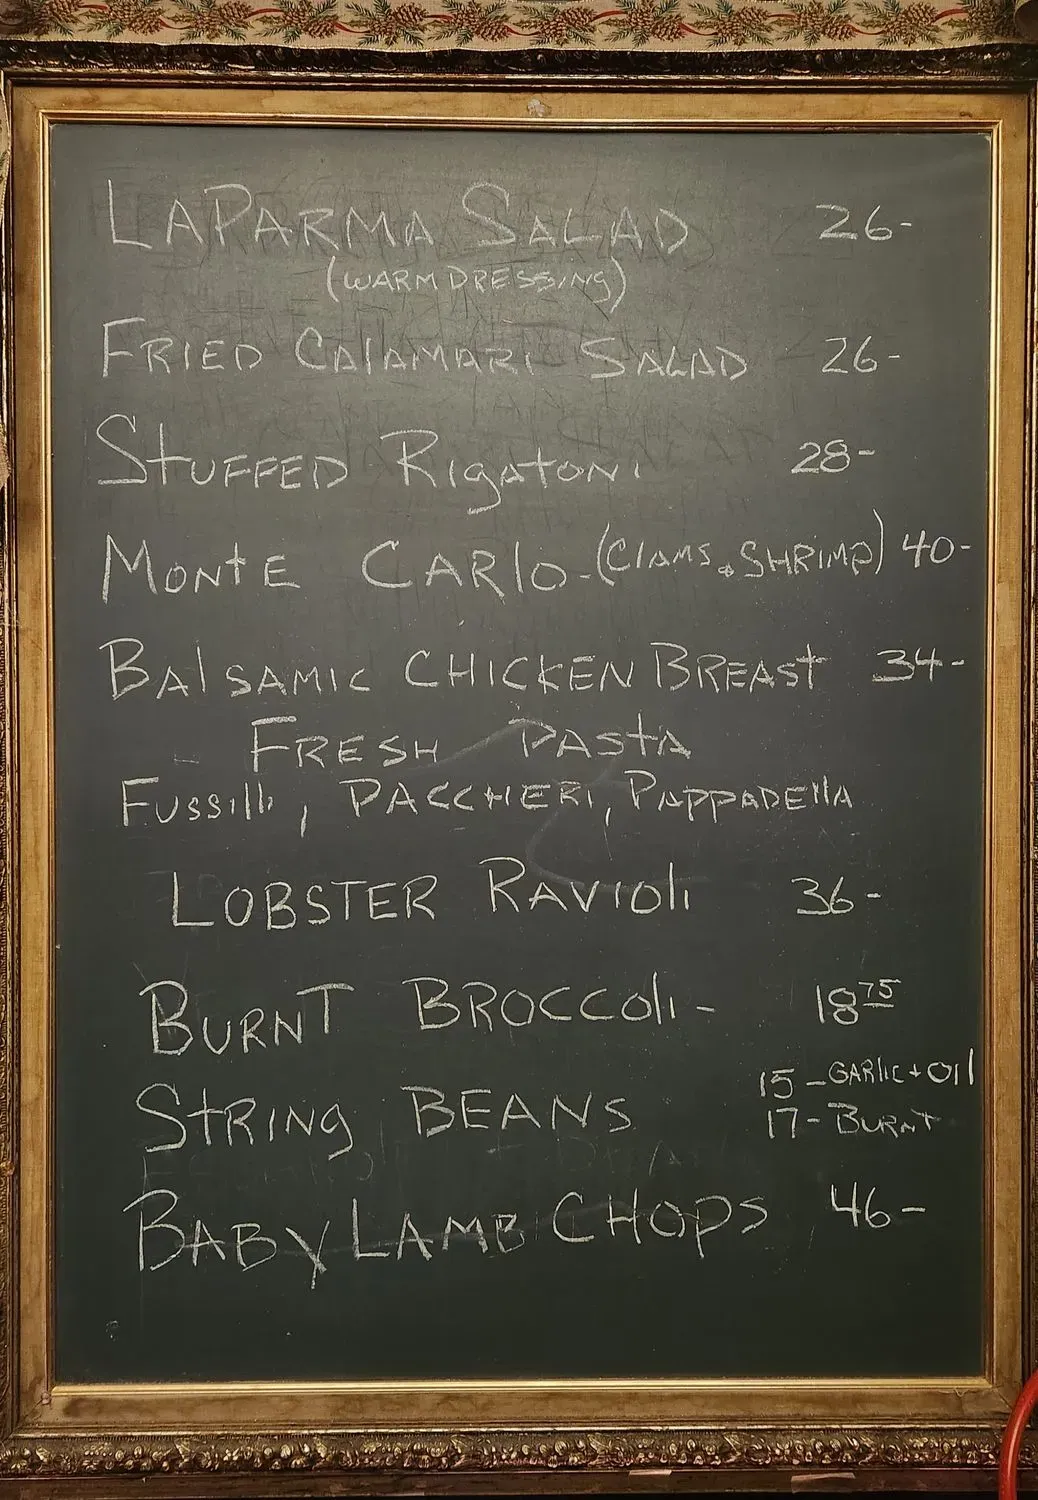 LAPARMA SALAD 26-
(WARM DRESSING)
FRIED CAlAMARI SALAD 26-
STUFFED RigatoNi 28-
MONTE CARlO-(ClAMS + SHRIMP) 40-
BAlSAMIC CHICKEN BREAST 34-
FRESH PASTA
FUSSilli, PACCHERI, PAPPADEllA
LOBSTER RAVIOli 36-
BURNT BROCCOli- 18 75
STRING BEANS 15-GARliC + OIl
17-BURNT
BABY LAMB CHOPS 46-